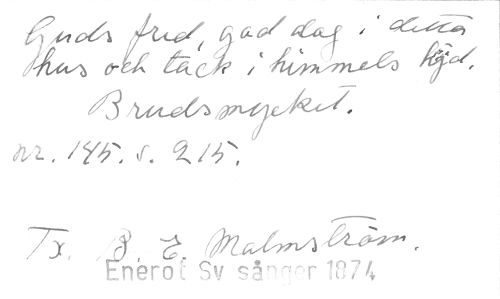 Guds fred, god dag i detta
hus och tack i himmels höjd.
Brudsmycket.
nr. 145. s. 215.
Tx. B. E. Malmström.
Enerot Sv sånger 1874